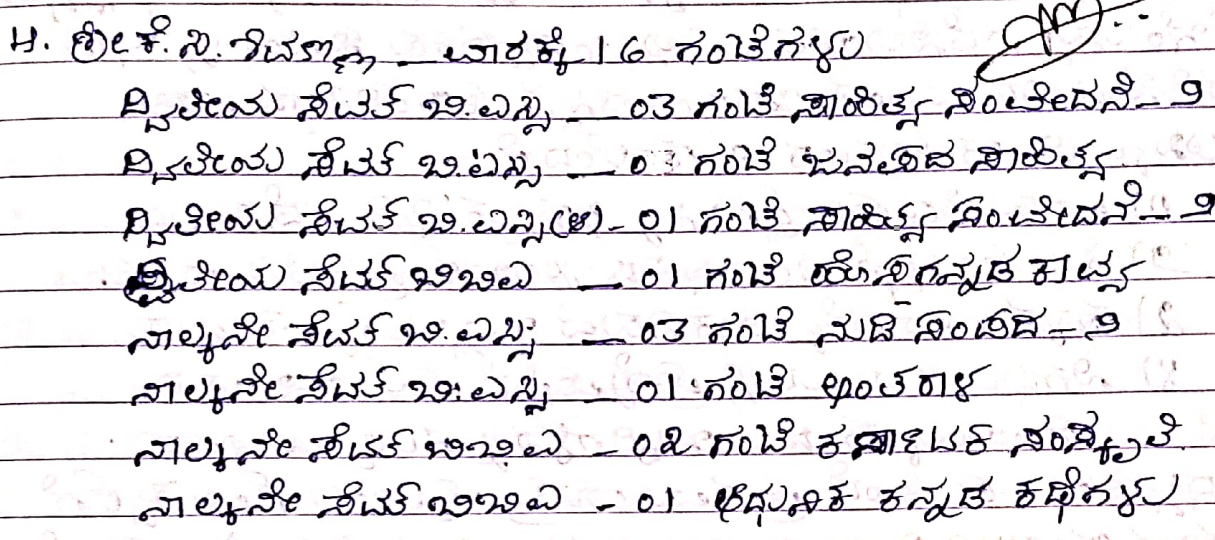 ೫. ಶ್ರೀ ಕೆ. ಸಿ. ಶಿವಣ್ಣ – ವಾರಕ್ಕೆ 16 ಗಂಟೆಗಳು
ದ್ವಿತೀಯ ಸೆಮತ್ ಬಿ.ಎಸ್ಸಿ – 03 ಗಂಟೆ ಸಾಹಿತ್ಯ ಸಂವೇದನೆ – ೨
ದ್ವಿತೀಯ ಸೆಮತ್ ಬಿ.ಎಸ್ಸಿ – 03 ಗಂಟೆ ಜನಪದ ಸಾಹಿತ್ಯ
ದ್ವಿತೀಯ ಸೆಮತ್ ಬಿ.ಎಸ್ಸಿ (ಆ) – 01 ಗಂಟೆ ಸಾಹಿತ್ಯ ಸಂವೇದನೆ – ೨
ದ್ವಿತೀಯ ಸೆಮತ್ ಬಿಬಿಎ – 01 ಗಂಟೆ ಹೊಸಗನ್ನಡ ಕಾವ್ಯ
ನಾಲ್ಕನೇ ಸೆಮತ್ ಬಿ.ಎಸ್ಸಿ – 03 ಗಂಟೆ ನುಡಿ ಸಂಪದ – ೨
ನಾಲ್ಕನೇ ಸೆಮತ್ ಬಿ.ಎಸ್ಸಿ – 01 ಗಂಟೆ ಅಂತರಾಳ
ನಾಲ್ಕನೇ ಸೆಮತ್ ಬಿಬಿಎ – 02 ಗಂಟೆ ಕರ್ನಾಟಕ ಸಂಸ್ಕೃತಿ
ನಾಲ್ಕನೇ ಸೆಮತ್ ಬಿಬಿಎ – 01 ಆಧುನಿಕ ಕನ್ನಡ ಕಥೆಗಳು